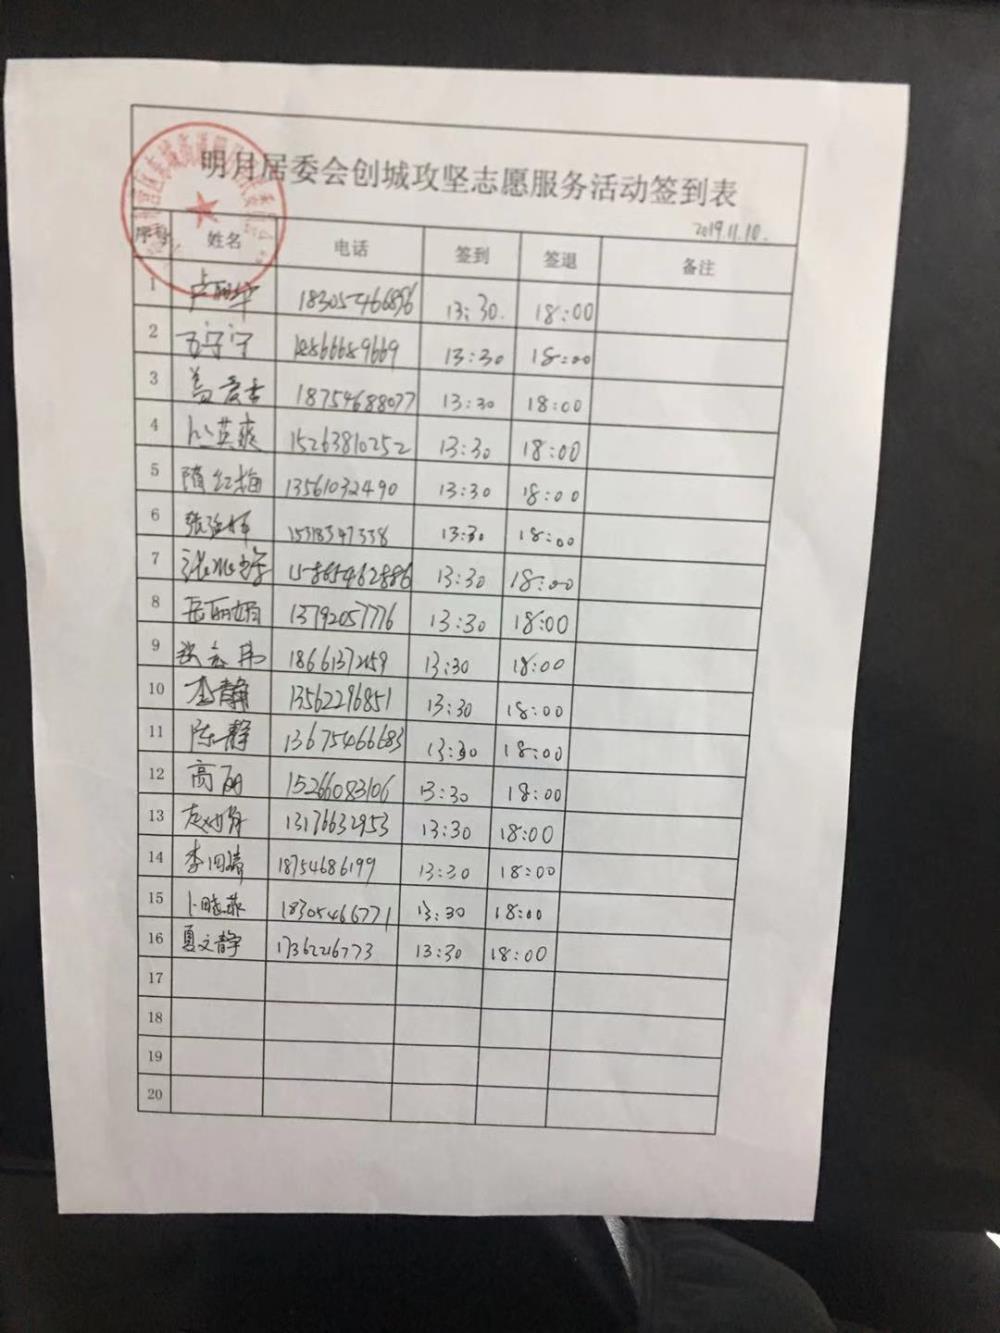 明月居委会创城攻坚志愿服务活动签到表
2019.11.10.
序号 姓名 电话 签到 签退 备注
1 卢丽华 18305466896 13:30. 18:00
2 宁宁 66689669 13:30 18:00
3 18754688077 13:30 18:00
4 丛英爽 15263810252 13:30 18:00
5 隋红梅 13561032490 13:30 18:00
6 15318347338 13:30 18:00
7 15865462886 13:30 18:00
8 岳丽娟 13792057776 13:30 18:00
9 18661372159 13:30 18:00
10 李静 13562296851 13:30 18:00
11 陈静 13675466683 13:30 18:00
12 高丽 15266083106 13:30 18:00
13 13176632953 13:30 18:00
14 李 18754686199 13:30 18:00
15 卜晓燕 18305466771 13:30 18:00
16 夏文静 17362216773 13:30 18:00
17
18
19
20